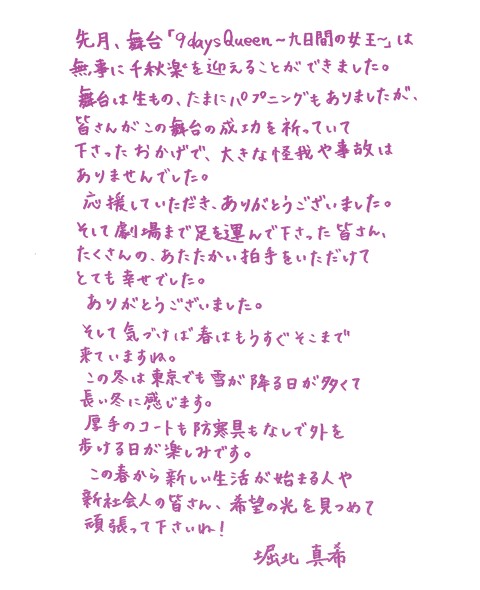 先月、舞台「9daysQueen～九日間の女王～」は
無事に千秋楽を迎えることができました。
舞台は生もの、たまにハプニングもありましたが、
皆さんがこの舞台の成功を祈っていて
下さったおかげで、大きな怪我や事故は
ありませんでした。
応援していただき、ありがとうございました。
そして劇場まで足を運んで下さった皆さん、
たくさんの、あたたかい拍手をいただけて
とても幸せでした。
ありがとうございました。
そして気づけば春はもうすぐそこまで
来ていますね。
この冬は東京でも雪が降る日が多くて
長い冬に感じます。
厚手のコートも防寒具もなしで外を
歩ける日が楽しみです。
この春から新しい生活が始まる人や
新社会人の皆さん、希望の光を見つめて
頑張って下さいね！
堀北真希